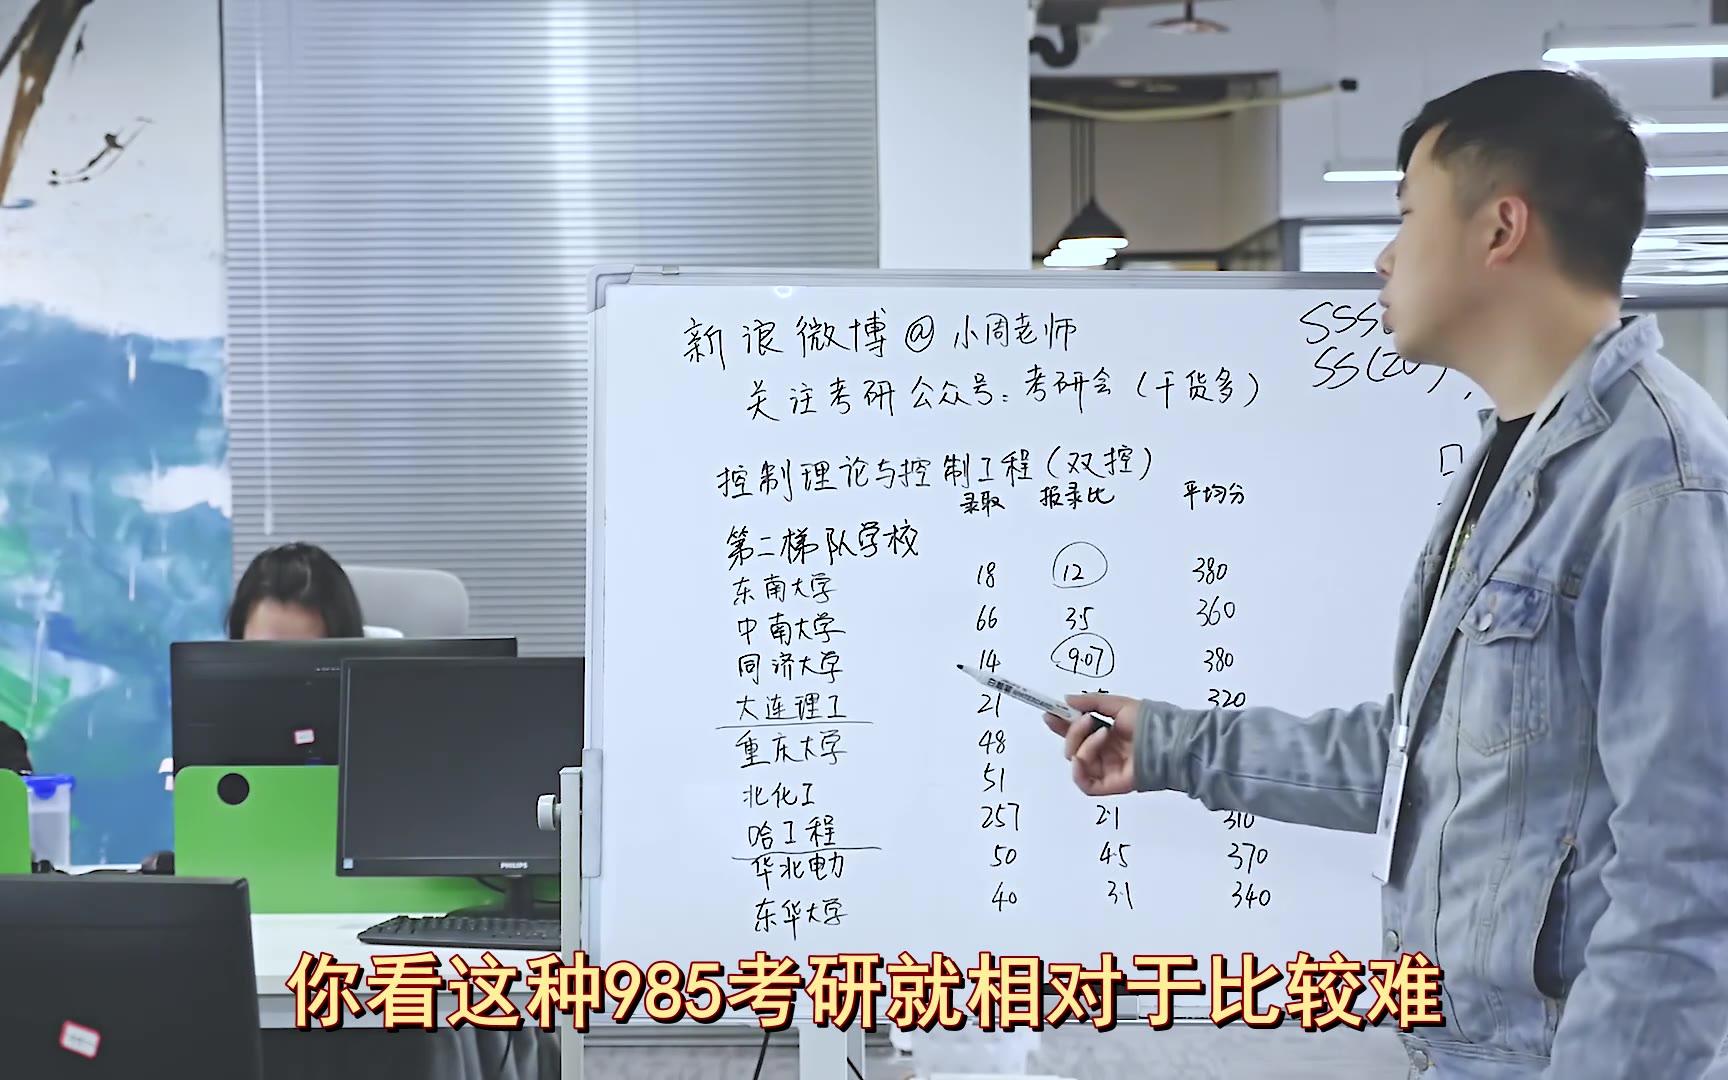 新浪微博@小周老师
关注考研公众号：考研会（干货多）
控制理论与控制工程（双控）
录取 报录比 平均分
第二梯队学校
东南大学 18 12 380
中南大学 66 3.5 360
同济大学 14 9.07 380
大连理工 21 320
重庆大学 48
北化工 51
哈工程 257 2.1 310
华北电力 50 4.5 370
东华大学 40 3.1 340
PHILIPS
你看这种985考研就相对于比较难